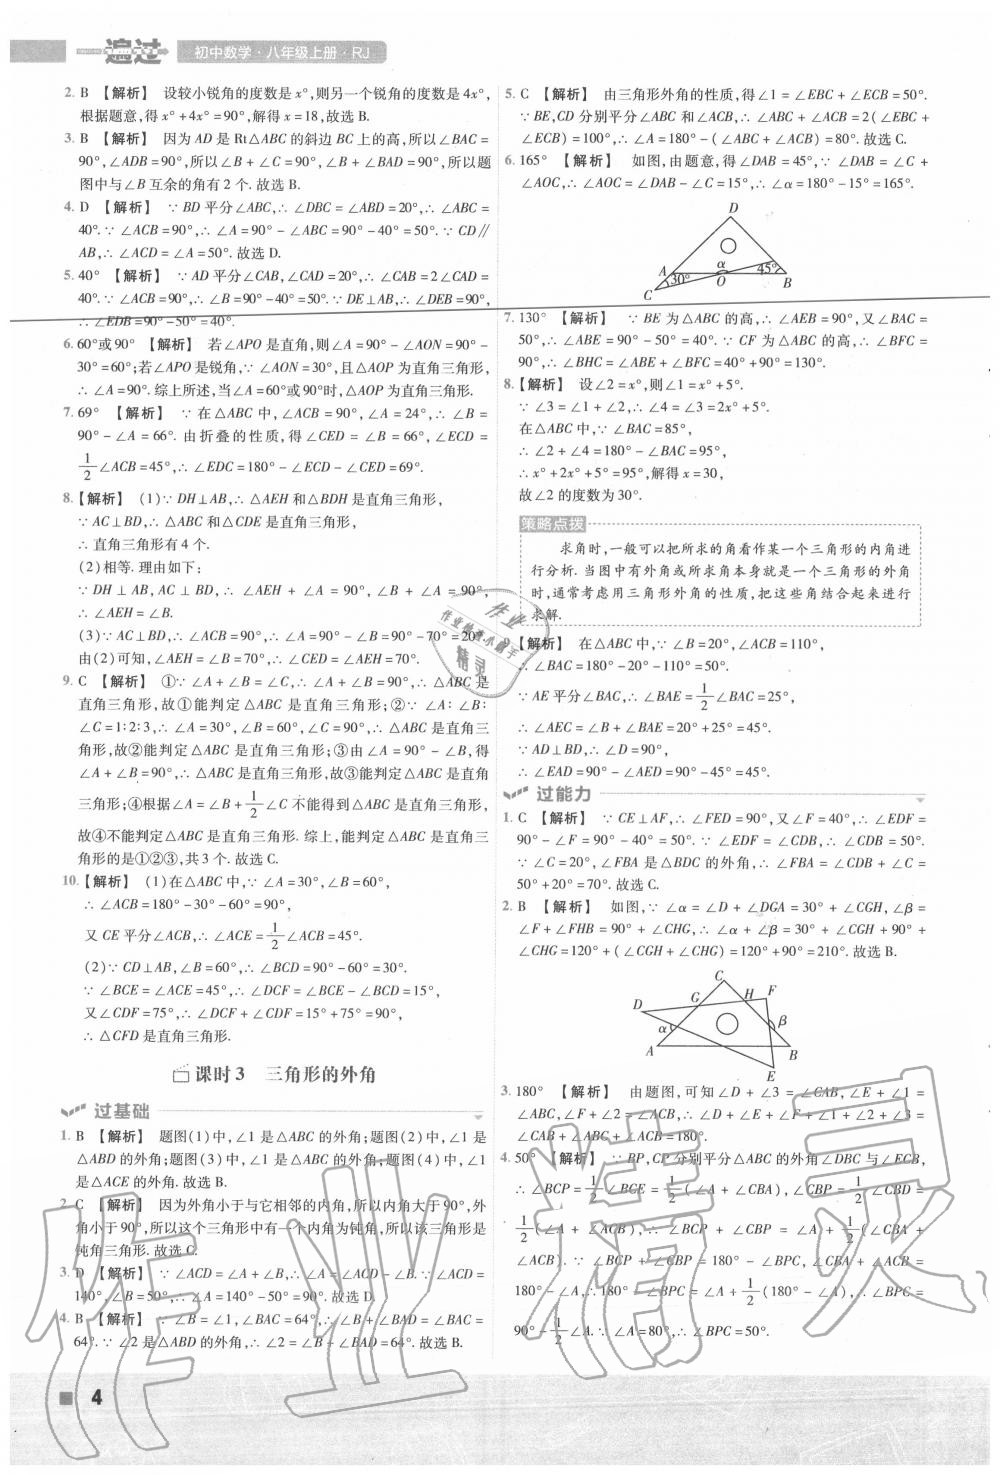 一遍过 初中数学·八年级上册·RJ
2. B 【解析】 设较小锐角的度数是x°,则另一个锐角的度数是4x°,
根据题意,得x°+4x°=90°,解得x=18,故选B.
3. B 【解析】 因为AD是Rt△ABC的斜边BC上的高,所以∠BAC=
90°,∠ADB=90°,所以∠B+∠C=90°,∠B+∠BAD=90°,所以题
图中与∠B互余的角有2个. 故选B.
4. D 【解析】 ∵BD平分∠ABC,∴∠DBC=∠ABD=20°,∴∠ABC=
40°.∵∠ACB=90°,∴∠A=90°-∠ABC=90°-40°=50°.∵CD∥
AB,∴∠ACD=∠A=50°. 故选D.
5. 40° 【解析】 ∵AD平分∠CAB,∠CAD=20°,∴∠CAB=2∠CAD=
40°.∵∠ACB=90°,∴∠B=90°-40°=50°.∵DE⊥AB,∴∠DEB=90°,
∴∠EDB=90°-50°=40°.
6. 60°或90° 【解析】 若∠APO是直角,则∠A=90°-∠AON=90°-
30°=60°;若∠APO是锐角,∵∠AON=30°,且△AOP为直角三角形,
∴∠A=90°. 综上所述,当∠A=60°或90°时,△AOP为直角三角形.
7. 69° 【解析】 ∵在△ABC中,∠ACB=90°,∠A=24°,∴∠B=
90°-∠A=66°. 由折叠的性质,得∠CED=∠B=66°,∠ECD=
1/2∠ACB=45°,∴∠EDC=180°-∠ECD-∠CED=69°.
8.【解析】 (1)∵DH⊥AB,∴△AEH和△BDH是直角三角形,
∵AC⊥BD,∴△ABC和△CDE是直角三角形,
∴直角三角形有4个.
(2)相等. 理由如下:
∵DH⊥AB,AC⊥BD,∴∠AEH+∠A=90°,∠B+∠A=90°,
∴∠AEH=∠B.
(3)∵AC⊥BD,∴∠ACB=90°,∴∠A=90°-∠B=90°-70°=20°.
由(2)可知,∠AEH=∠B=70°,∴∠CED=∠AEH=70°.
9. C 【解析】 ①∵∠A+∠B=∠C,∴∠A+∠B=90°,∴△ABC是
直角三角形,故①能判定△ABC是直角三角形;②∵∠A∶∠B∶
∠C=1∶2∶3,∴∠A=30°,∠B=60°,∠C=90°,∴△ABC是直角三
角形,故②能判定△ABC是直角三角形;③由∠A=90°-∠B,得
∠A+∠B=90°,∴△ABC是直角三角形,故③能判定△ABC是直角
三角形;④根据∠A=∠B+1/2∠C不能得到△ABC是直角三角形,
故④不能判定△ABC是直角三角形. 综上,能判定△ABC是直角三
角形的是①②③,共3个. 故选C.
10.【解析】 (1)在△ABC中,∵∠A=30°,∠B=60°,
∴∠ACB=180°-30°-60°=90°,
又CE平分∠ACB,∴∠ACE=1/2∠ACB=45°.
(2)∵CD⊥AB,∠B=60°,∴∠BCD=90°-60°=30°.
∵∠BCE=∠ACE=45°,∴∠DCF=∠BCE-∠BCD=15°,
又∠CDF=75°,∴∠DCF+∠CDF=15°+75°=90°,
∴△CFD是直角三角形.
课时3 三角形的外角
过基础
1. B 【解析】 题图(1)中,∠1是△ABC的外角;题图(2)中,∠1是
△ABD的外角;题图(3)中,∠1是△ABC的外角;题图(4)中,∠1
是△ACE的外角. 故选B.
2. C 【解析】 因为外角小于与它相邻的内角,所以内角大于90°,外
角小于90°,所以这个三角形中有一个内角为钝角,所以该三角形是
钝角三角形. 故选C.
3. D 【解析】 ∵∠ACD=∠A+∠B,∴∠A=∠ACD-∠B.∵∠ACD=
140°,∠B=50°,∴∠A=140°-50°=90°. 故选D.
4. B 【解析】 ∵∠B=∠1,∠BAC=64°,∴∠B+∠BAD=∠BAC=
64°.∵∠2是△ABD的外角,∴∠2=∠B+∠BAD=64°. 故选B.
5. C 【解析】 由三角形外角的性质,得∠1=∠EBC+∠ECB=50°.
∵BE,CD分别平分∠ABC和∠ACB,∴∠ABC+∠ACB=2(∠EBC+
∠ECB)=100°,∴∠A=180°-(∠ABC+∠ACB)=80°. 故选C.
6. 165° 【解析】 如图,由题意,得∠DAB=45°,∵∠DAB=∠C+
∠AOC,∴∠AOC=∠DAB-∠C=15°,∴∠α=180°-15°=165°.
D
A 30° α 45°
O B
C
7. 130° 【解析】 ∵BE为△ABC的高,∴∠AEB=90°,又∠BAC=
50°,∴∠ABE=90°-50°=40°.∵CF为△ABC的高,∴∠BFC=
90°,∴∠BHC=∠ABE+∠BFC=40°+90°=130°.
8.【解析】 设∠2=x°,则∠1=x°+5°.
∵∠3=∠1+∠2,∴∠4=∠3=2x°+5°.
在△ABC中,∵∠BAC=85°,
∴∠2+∠4=180°-∠BAC=95°,
∴x°+2x°+5°=95°,解得x=30,
故∠2的度数为30°.
策略点拨
求角时,一般可以把所求的角看作某一个三角形的内角进
行分析. 当图中有外角或所求角本身就是一个三角形的外角
时,通常考虑用三角形外角的性质,把这些角结合起来进行
求解.
【解析】 在△ABC中,∵∠B=20°,∠ACB=110°,
∴∠BAC=180°-20°-110°=50°.
∵AE平分∠BAC,∴∠BAE=1/2∠BAC=25°,
∴∠AEC=∠B+∠BAE=20°+25°=45°.
∵AD⊥BD,∴∠D=90°,
∴∠EAD=90°-∠AED=90°-45°=45°.
过能力
1. C 【解析】 ∵CE⊥AF,∴∠FED=90°,又∠F=40°,∴∠EDF=
90°-∠F=90°-40°=50°.∵∠EDF=∠CDB,∴∠CDB=50°.
∵∠C=20°,∠FBA是△BDC的外角,∴∠FBA=∠CDB+∠C=
50°+20°=70°. 故选C.
2. B 【解析】 如图,∵∠α=∠D+∠DGA=30°+∠CGH,∠β=
∠F+∠FHB=90°+∠CHG,∴∠α+∠β=30°+∠CGH+90°+
∠CHG=120°+(∠CGH+∠CHG)=120°+90°=210°. 故选B.
C
D G H F
α β
A B
E
3. 180° 【解析】 由题图,可知∠D+∠3=∠CAB,∠E+∠1=
∠ABC,∠F+∠2=∠ACB,∴∠D+∠E+∠F+∠1+∠2+∠3=
∠CAB+∠ABC+∠ACB=180°.
4. 50° 【解析】 ∵BP,CP分别平分△ABC的外角∠DBC与∠ECB,
∴∠BCP=1/2∠BCE=1/2(∠A+∠CBA),∠CBP=1/2∠CBD=
1/2(∠A+∠ACB),∴∠BCP+∠CBP=∠A+1/2(∠CBA+
∠ACB).∵∠BCP+∠CBP=180°-∠BPC,∠CBA+∠ACB=
180°-∠A,∴180°-∠BPC=∠A+1/2(180°-∠A),∴∠BPC=
90°-1/2∠A.∵∠A=80°,∴∠BPC=50°.
4
作业精灵